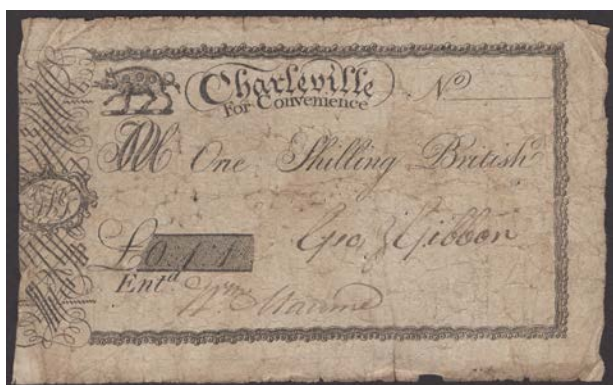 Charleville
For Convenience
No
One Shilling British
£0.1.1
Geo Gibbon
Entd
Wm